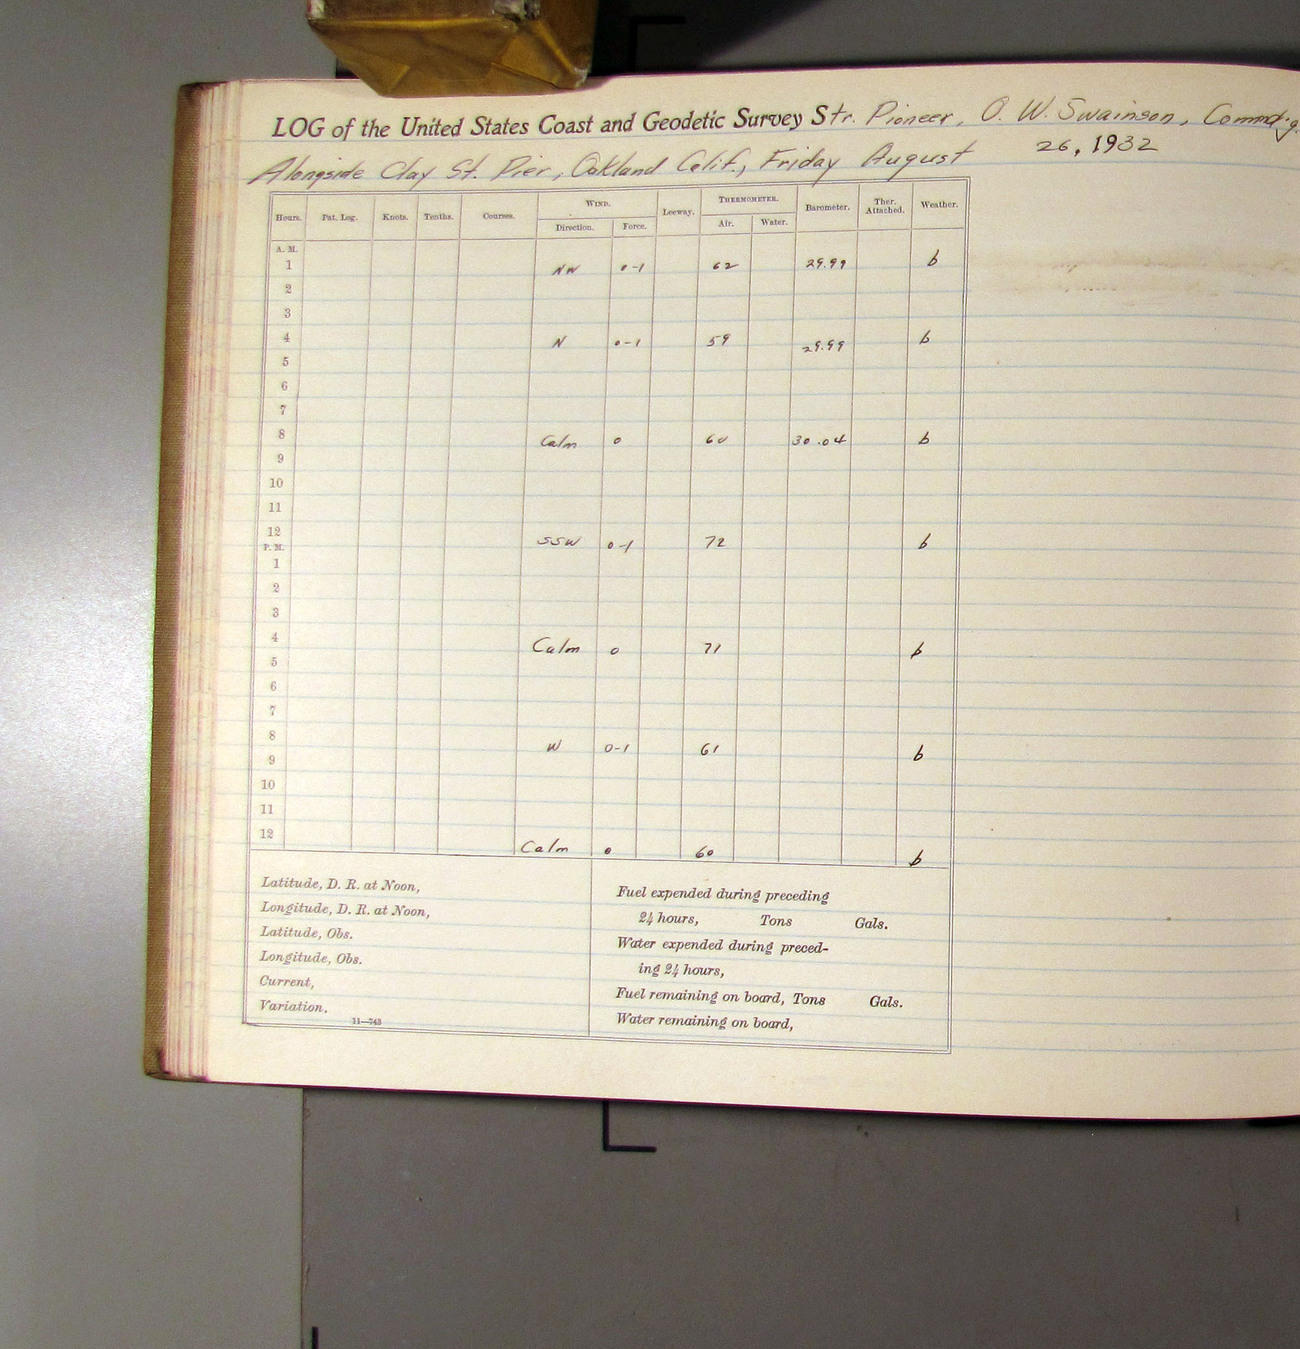 LOG of the United States Coast and Geodetic Survey Str. Pioneer, O. W. Swainson, Commd'g.
Alongside Clay St. Pier, Oakland Calif., Friday August 26, 1932
Hours. Pat. Log. Knots. Tenths. Courses. WIND. Leeway. THERMOMETER. Barometer. Ther. Attached. Weather.
Direction. Force. Air. Water.
A. M.
1 NW 0-1 62 29.99 b
2
3
4 N 0-1 59 29.99 b
5
6
7
8 Calm 0 60 30.04 b
9
10
11
12 SSW 0-1 72 b
P. M.
1
2
3
4 Calm 0 71 b
5
6
7
8 W 0-1 61 b
9
10
11
12 Calm 0 60 b
Latitude, D. R. at Noon,
Longitude, D. R. at Noon,
Latitude, Obs.
Longitude, Obs.
Current,
Variation,
11—743
Fuel expended during preceding
24 hours, Tons Gals.
Water expended during preced-
ing 24 hours,
Fuel remaining on board, Tons Gals.
Water remaining on board,